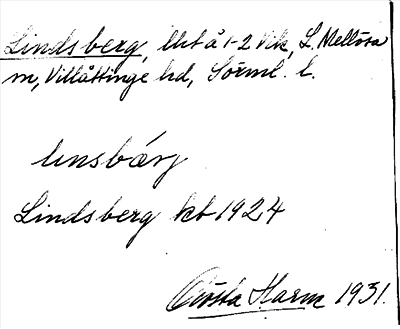 Lindsberg, lht å 1-2 Vik, L. Mellösa
sn, Villåttinge hd, Sörml. l.
linsbærj
Lindsberg kb 1924
Gösta Harm 1931.